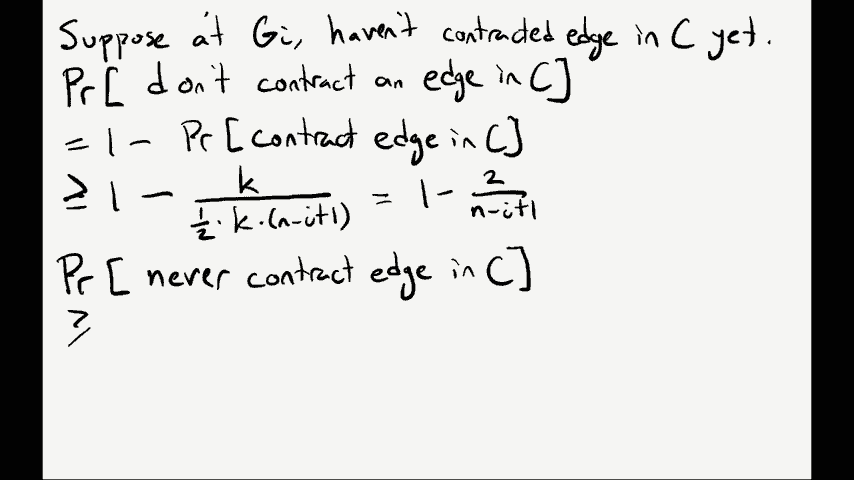 Suppose at Gi, haven't contracted edge in C yet.
Pr[ don't contract an edge in C]
= 1 - Pr[contract edge in C]
≥ 1 - k / (1/2 · k · (n-i+1)) = 1 - 2 / (n-i+1)
Pr[ never contract edge in C]
≥